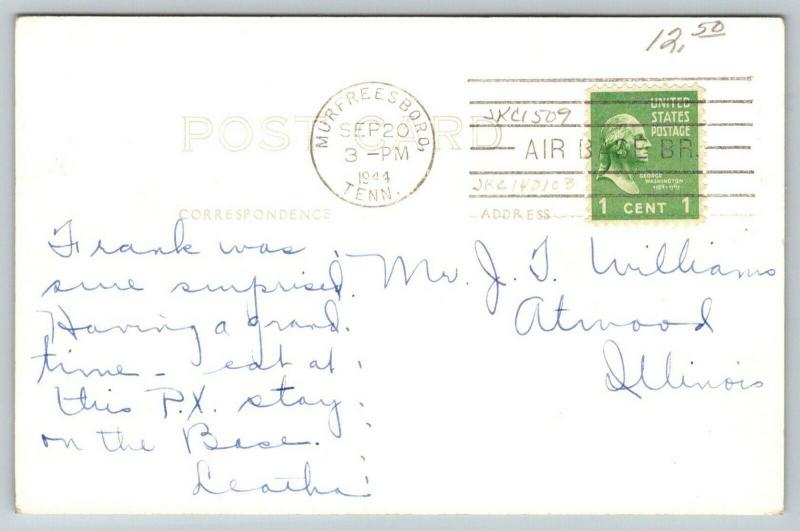 12.50
POST CARD
MURFREESBORO,
SEP 20
3 -PM
1944
TENN.
JKC1509
AIR BASE BR.
JKC140103
UNITED
STATES
POSTAGE
GEORGE
WASHINGTON
1 CENT 1
CORRESPONDENCE
ADDRESS
Frank was
sure surprised.
Having a grand
time - eat at
this P.X. stay
on the Base.
Leatha
Mr. J. T. Williams
Atwood
Illinois